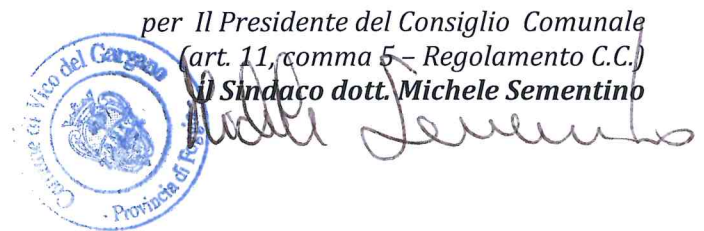 per Il Presidente del Consiglio Comunale
(art. 11, comma 5 – Regolamento C.C.)
il Sindaco dott. Michele Sementino
Comune di Vico del Gargano
Provincia di Foggia